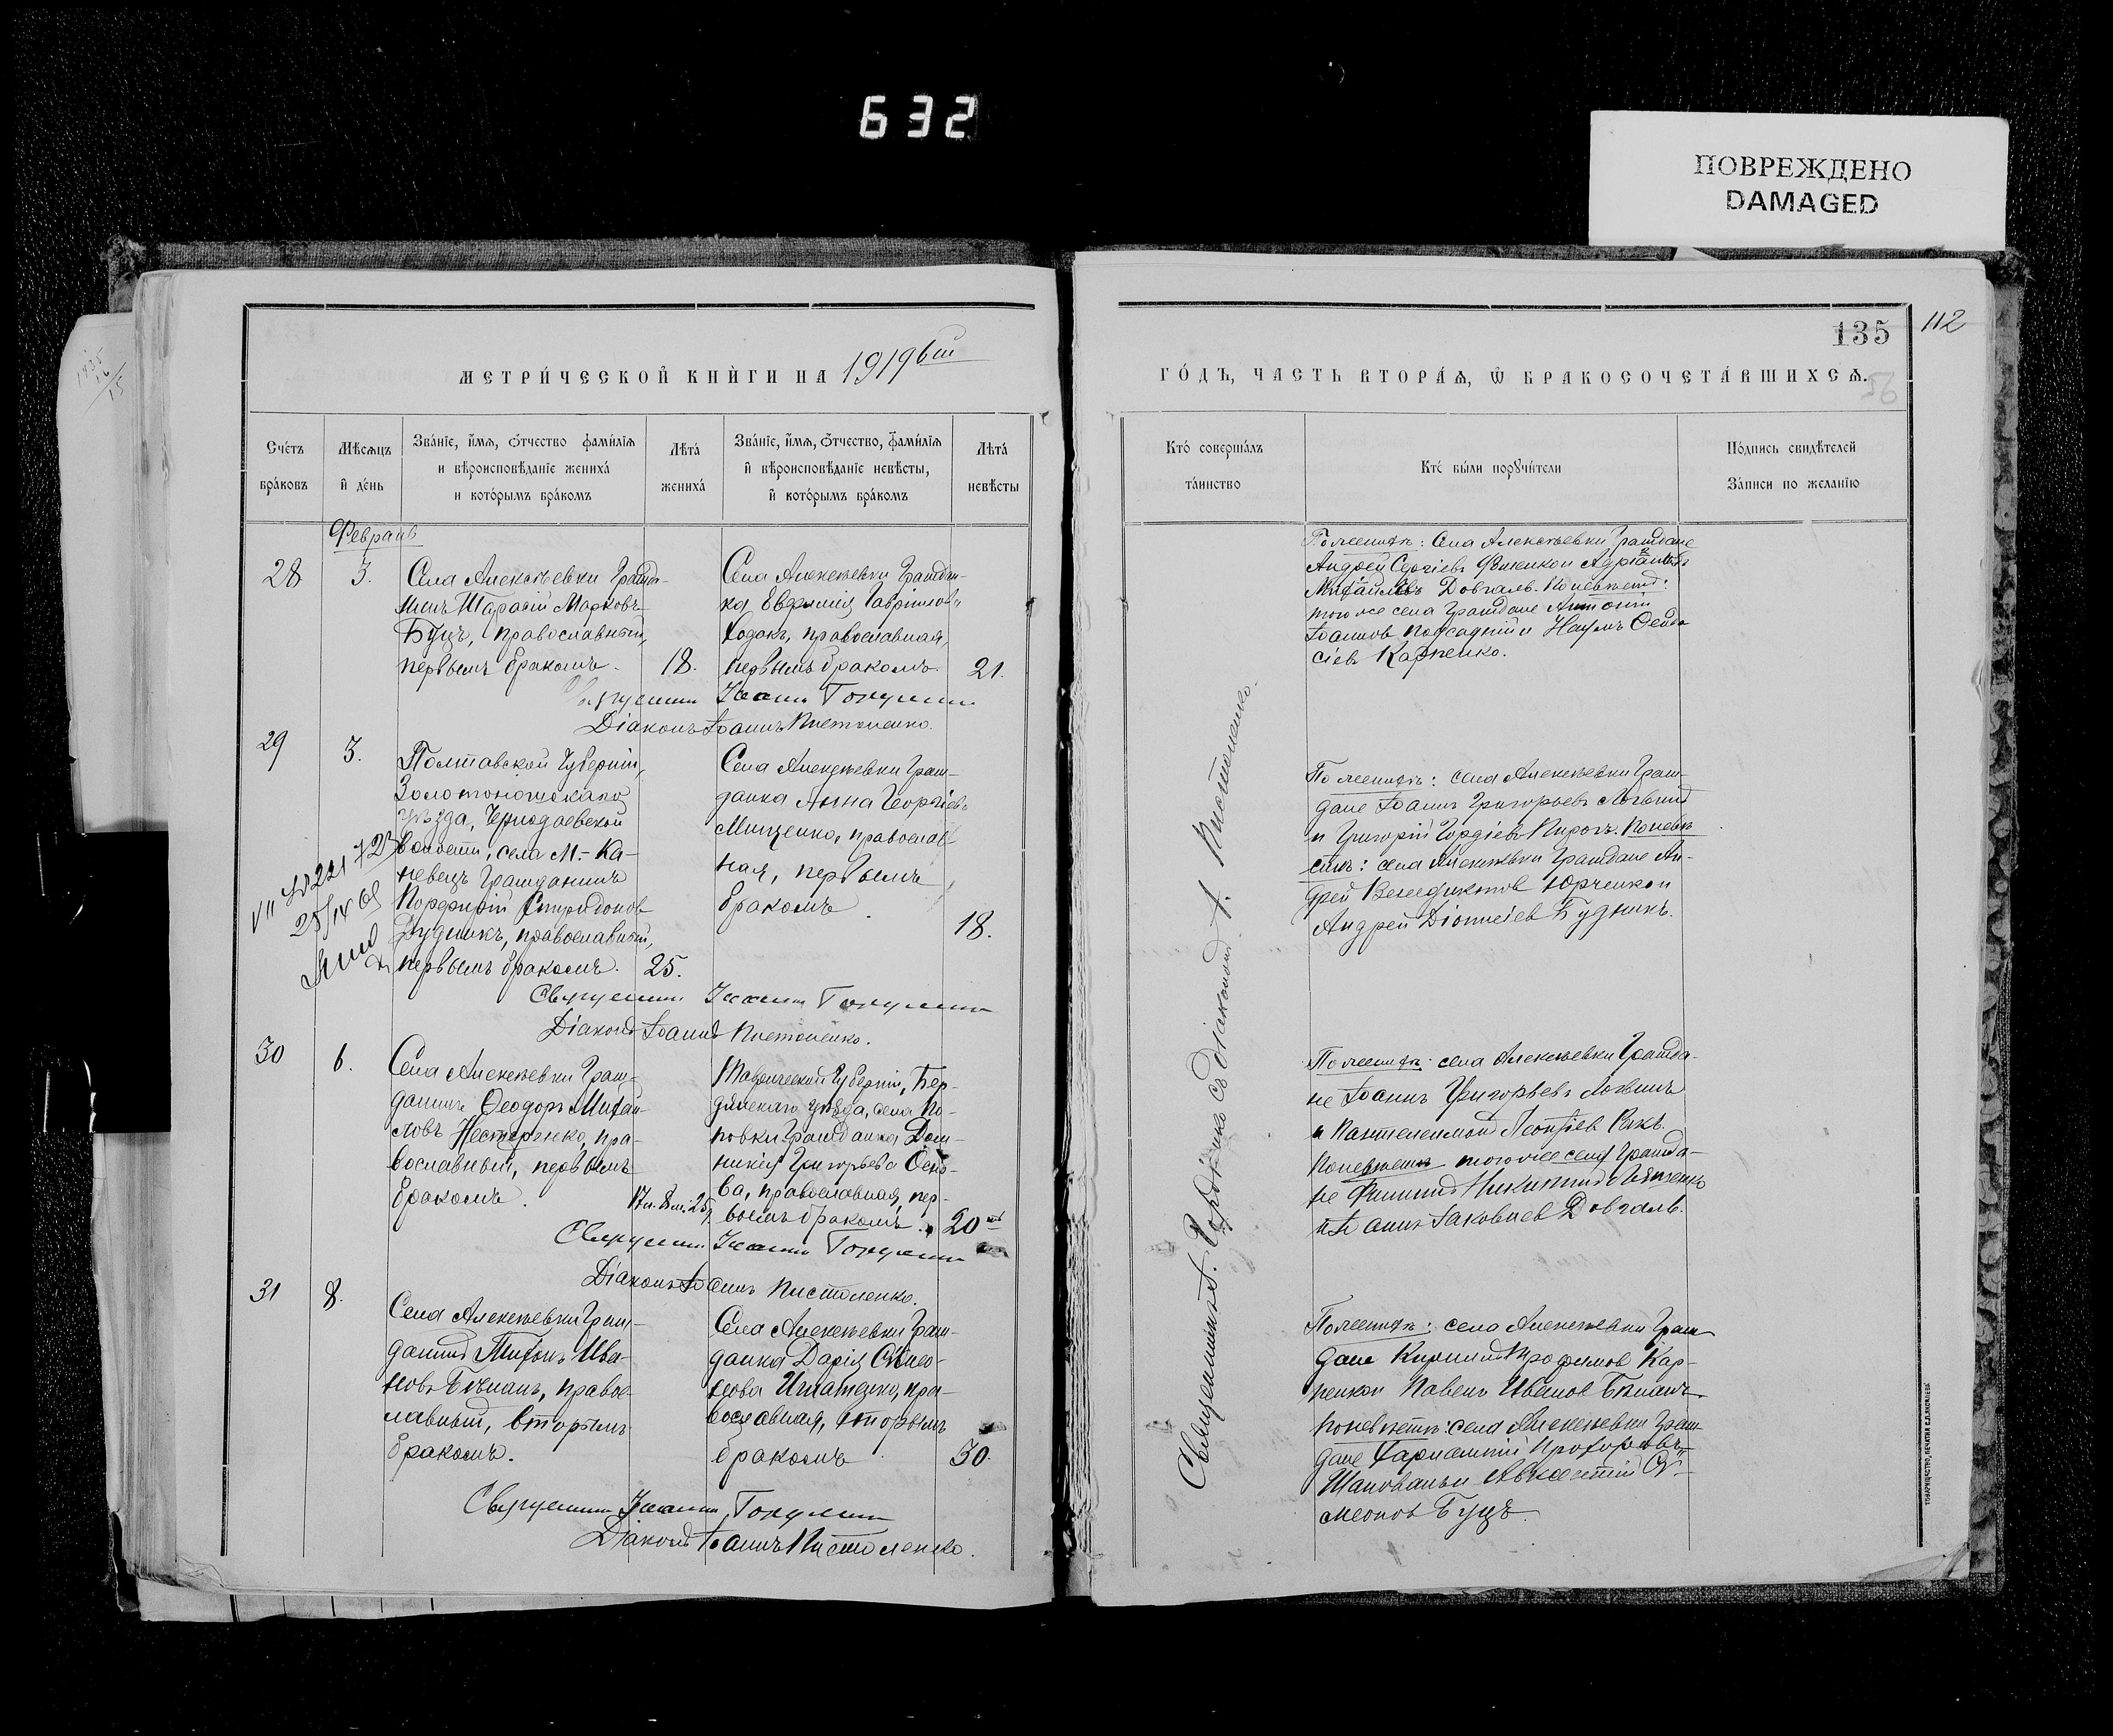 632
ПОВРЕЖДЕНО
DAMAGED
МЕТРИ́ЧЕСКОЙ КНИ́ГИ НА 1919ый
Сче́тъ бра́ковъ
Мѣсяцъ и҆ де́нь
Зва́нїе, и҆́мя, ѻ҆́тчество фами́лїя и вѣроисповѣ́данїе жениха́ и кото́рымъ бра́комъ
Лѣта́ жениха́
Зва́нїе, и҆́мя, ѻ҆́тчество, фами́лїя и҆ вѣроисповѣ́данїе невѣ́сты, и҆ кото́рымъ бра́комъ
Лѣта́ невѣ́сты
Февраль
28
3.
Села Алексѣевки Гражда-
нинъ Тарасій Марковъ
Буцъ, православный,
первымъ бракомъ.
18.
Села Алексѣевки Гражда-
ка Евфимія Гавріилов
Ходакъ, православная,
первымъ бракомъ.
21.
Діаконъ Іоаннъ Пистоленко.
29
3.
Полтавской Губерніи,
Золотоношскаго
уѣзда,
волости, села М.-Ка-
невецъ Гражданинъ
Порфирій Спиридонов
Дудникъ, православный,
первымъ бракомъ.
25.
Села Алексѣевки Граж-
данка Анна Георгіев
Мищенко, православ-
ная, первымъ
бракомъ.
18.
Діаконъ Іоаннъ Пистоленко.
30
6.
Села Алексѣевки Граж-
данинъ Ѳеодоръ Михаи-
ловъ Нестеренко, пра-
вославный, первымъ
бракомъ.
Таврической Губерніи, Бер-
дянскаго уѣзда, села По-
повки Гражданка Дом-
никія Григорьева
православная, пер-
вымъ бракомъ.
20
Діаконъ Іоаннъ Пистоленко.
31
8.
Села Алексѣевки Граж-
данинъ Тихонъ Ива-
новъ Бѣланъ, правос-
лавный, вторымъ
бракомъ.
Села Алексѣевки Граж-
данка Дарія Симео-
нова Игнатенко, пра-
вославная, вторымъ
бракомъ.
30.
Діаконъ Іоаннъ Пистоленко.
135
112
ГО́ДЪ, ЧАСТЬ ВТОРА́Я, Ѽ БРАКОСОЧЕТА́ВШИХСЯ.
Кто́ соверша́лъ та́инство
Кто́ бы́ли пору́чители
По́дпись свидѣ́телей За́писи по жела́нїю
Священникъ І. Гордѣенко съ діакономъ І. Пистоленко.
По женихѣ: села Алексѣевки Граждане
Андрей Сергіевъ
Михайловъ Довгаль. По невѣстѣ:
того же села Граждане Антоній
Іоаннов и Наумъ Ѳеодо
сіев Карпенко.
По женихѣ: села Алексѣевки Граж-
дане Іоаннъ Григорьевъ Логвинъ
и Григорій Гордіевъ Пирогъ. По невѣ
стѣ: села Алексѣевки Граждане Ан-
дрей Венедиктов Юрченко и
Андрей Діонисіев Будникъ.
По женихѣ: села Алексѣевки Гражда-
не Іоаннъ Григорьевъ Логвинъ
и Пантелеимонъ Леонтіев Ракъ.
По невѣстѣ того же села Гражда-
не Филиппъ Никитинъ
и Іоаннъ Іаковлев Довгаль.
По женихѣ: села Алексѣевки Граж-
дане Кириллъ Трофимов Кар-
пенко и Павелъ Иванов Бѣланъ.
По невѣстѣ: села Алексѣевки Граж-
дане Харлампій Прохоровъ
Шаповалъ и Авксентій Си-
меонов Буцъ.